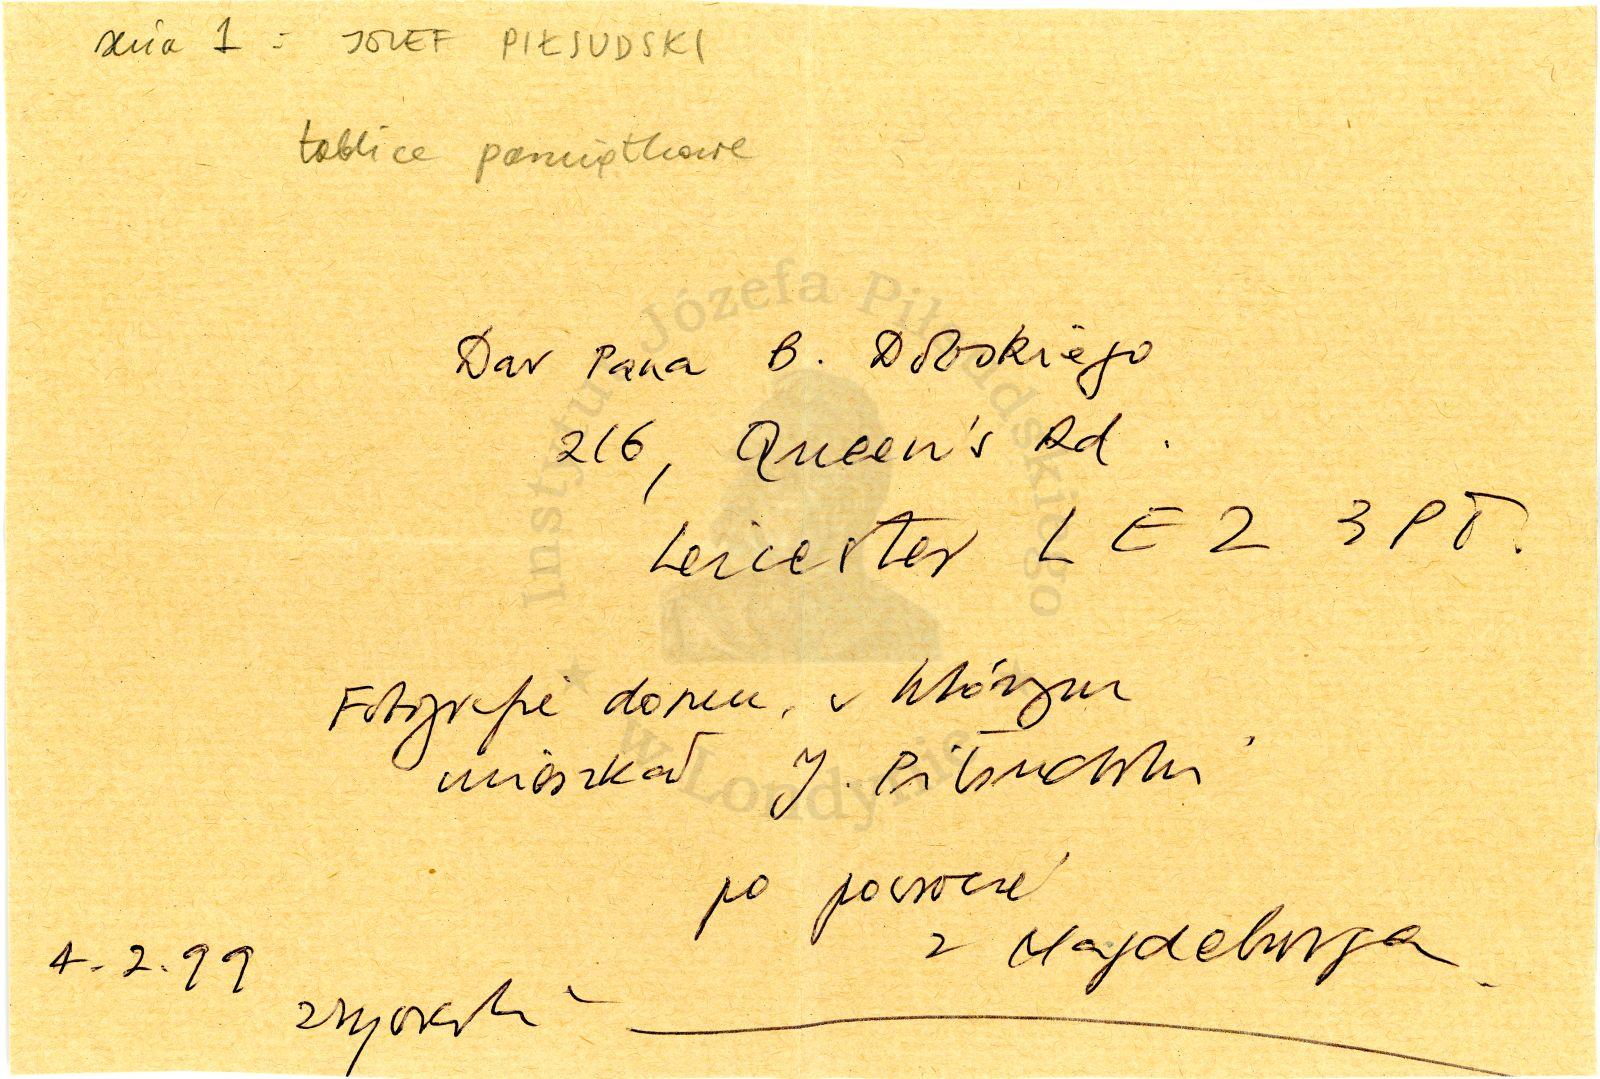 seria 1 : JÓZEF PIŁSUDSKI
tablice pamiątkowe
Dar Pana B. Dolskiego
216, Queen's Rd.
Leicester LE2 3PT.
Fotografie domu, w którym
mieszkał J. Piłsudski
po powrocie
z Magdeburga
4.2.99
Instytut Józefa Piłsudskiego
w Londynie